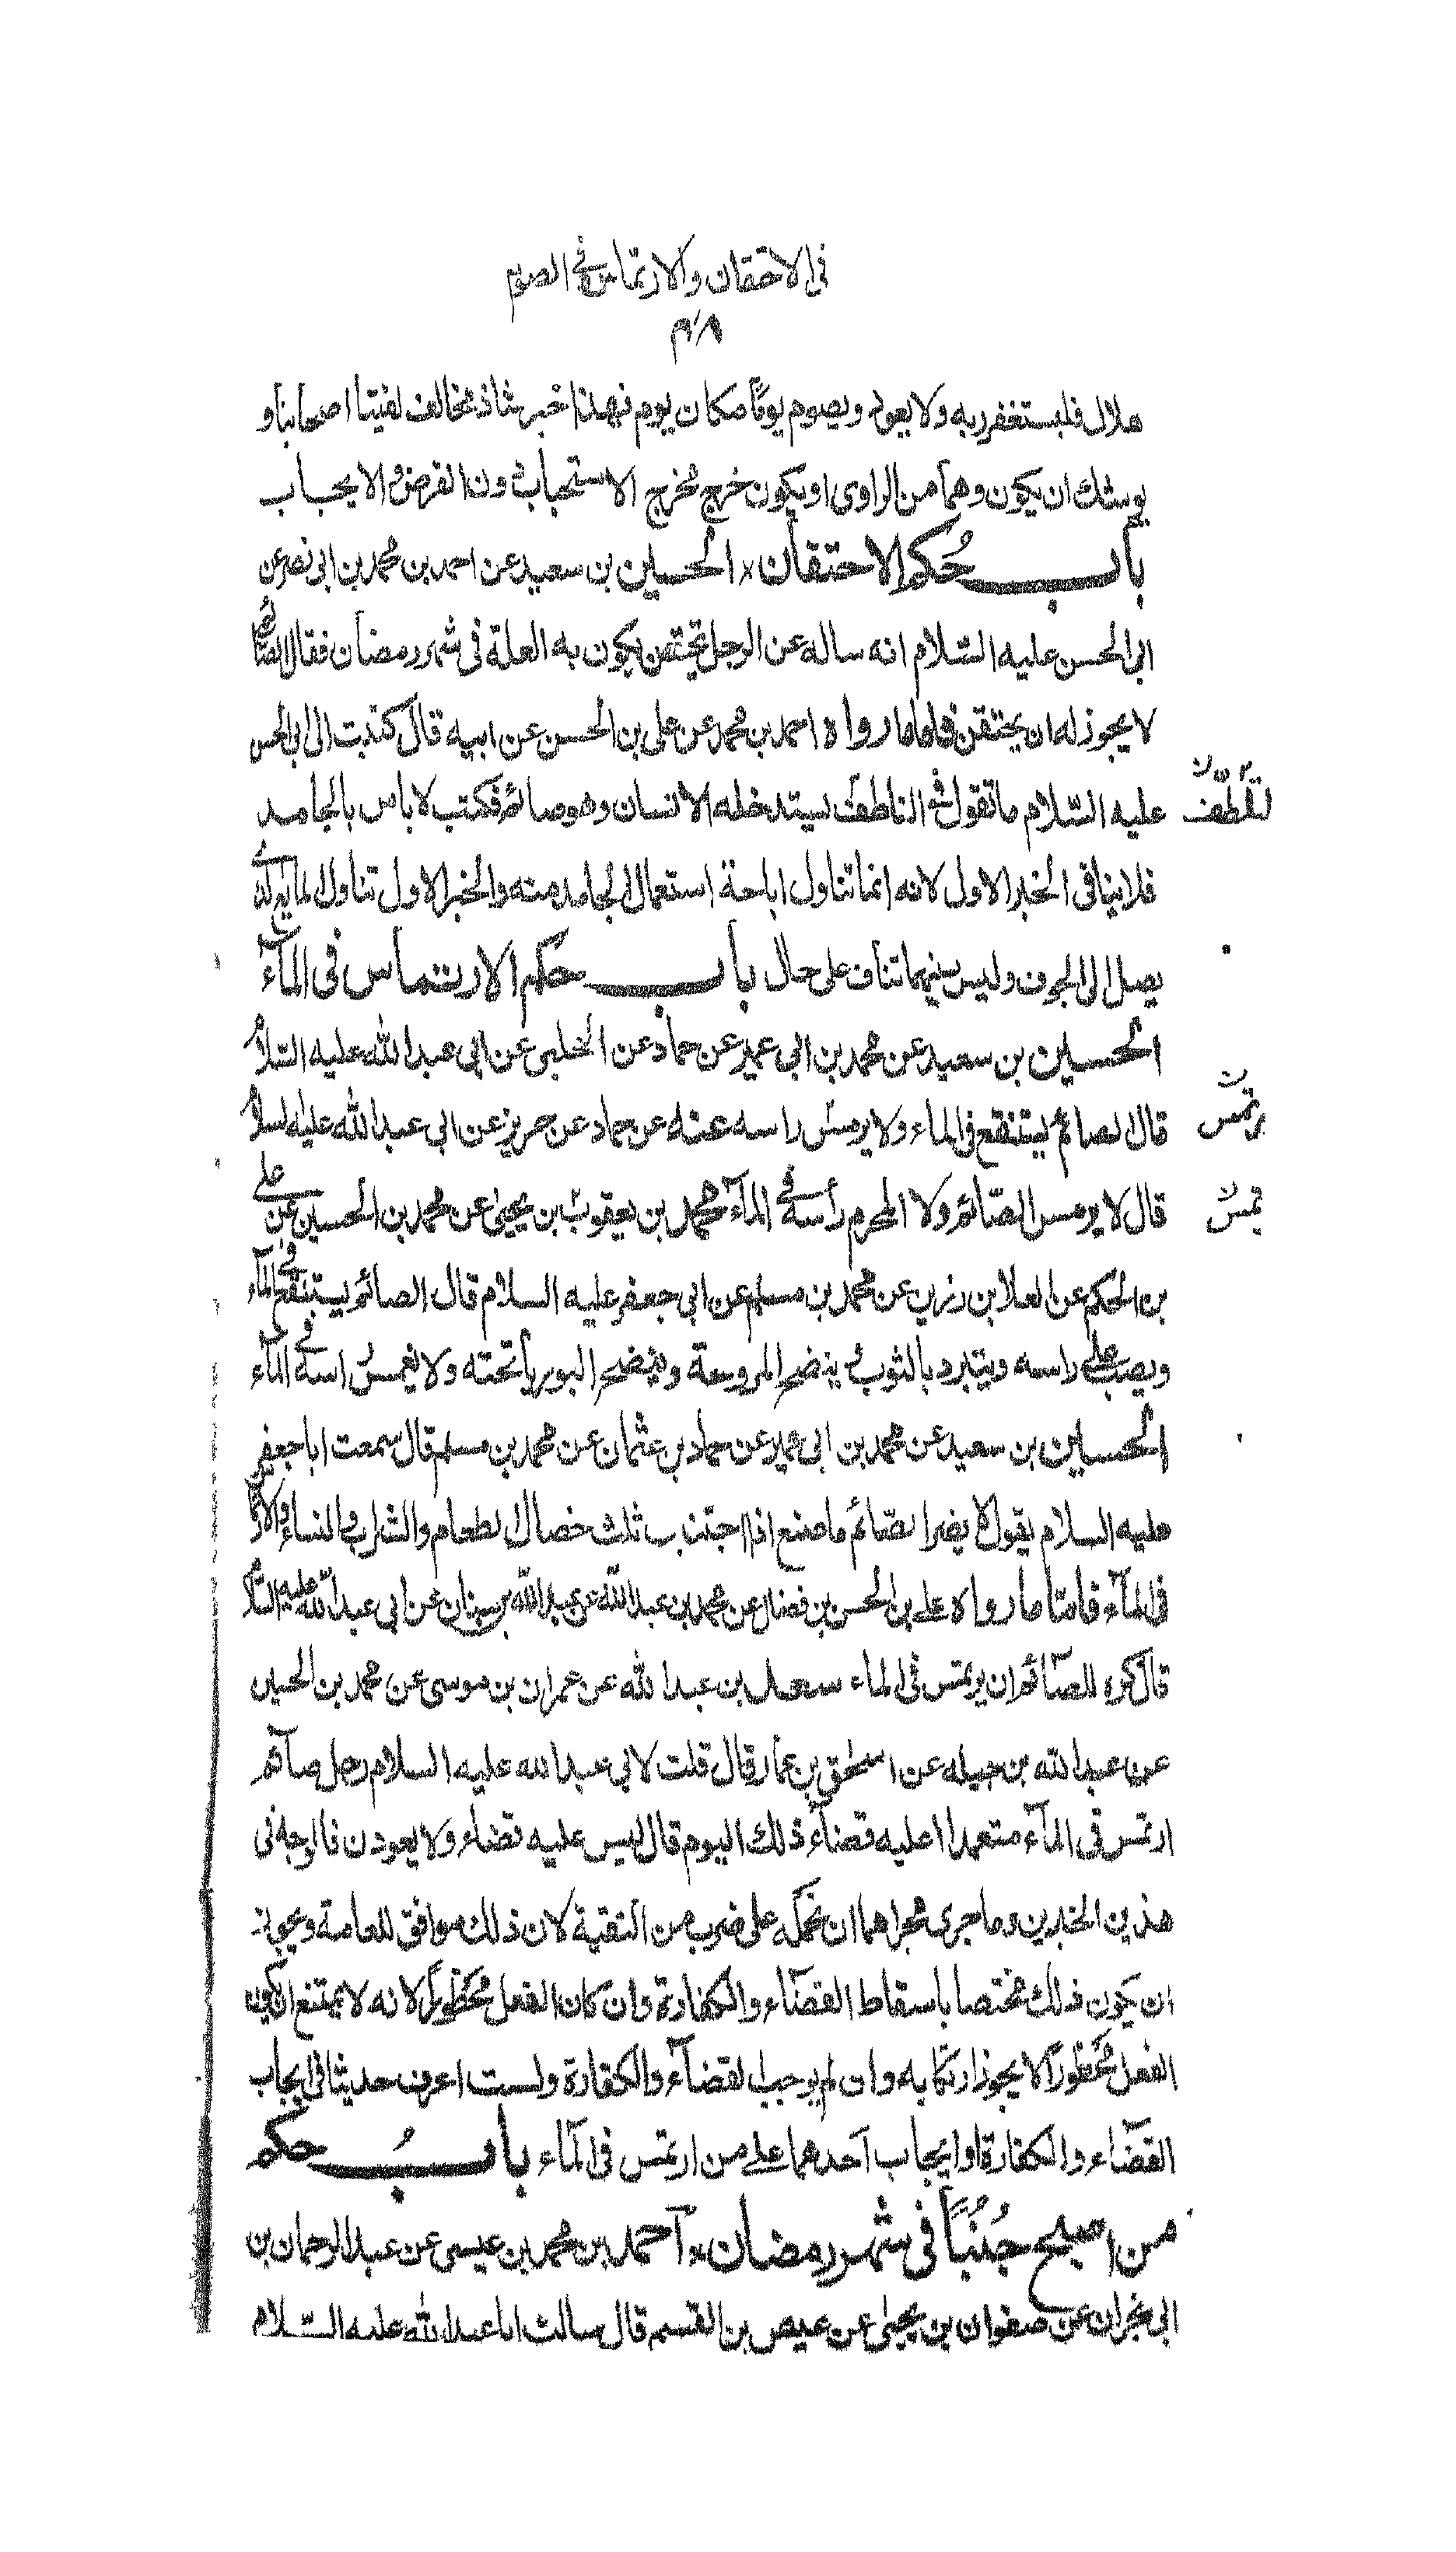 فى الاحتقان والارتماس فى الصوم
هلال فليستغفر ربه ولا يعود ويصوم يوما مكان يوم فهذا خبر شاذ مخالف لفتيا اصحابنا و
يوشك ان يكون وهما من الراوى او يكون خرج مخرج الاستحباب دون الفرض و الايجاب
باب حكم الاحتقان الحسين بن سعيد عن احمد بن محمد بن ابى نصر عن
ابى الحسن عليه السلام انه ساله عن الرجل تحتقن يكون به العلة فى شهر رمضان فقال الصائم
لا يجوز له ان يحتقن فاما ما رواه احمد بن محمد عن على بن الحسن عن ابيه قال كتبت الى ابى الحسن
عليه السلام ما تقول فى الناطف يستدخله الانسان وهو صائم فكتب لا باس بالجامد
فلا ينافى الخبر الاول لانه انما تناول اباحة استعمال الجامد منه والخبر الاول تناول لمايع لانه
يصل الى الجوف وليس بينهما تناف على حال باب حكم الارتماس فى المآء
الحسين بن سعيد عن محمد بن ابى عمير عن حماد عن الحلبى عن ابى عبد الله عليه السلام
قال الصائم يستنقع فى الماء ولا يرمس راسه عنه عن حماد عن حريز عن ابى عبد الله عليه السلام
قال لا يرمس الصائم ولا المحرم رأسه فى المآء محمد بن يعقوب بن يحيى عن محمد بن الحسين عن على
بن الحكم عن العلا بن رزين عن محمد بن مسلم عن ابى جعفر عليه السلام قال الصائم يستنقع فى المآء
ويصب على راسه ويتبرد بالثوب و ينضح المروحة وينضح البوريا تحته ولا يغمس راسه فى المآء
الحسين بن سعيد عن محمد بن ابى عمير عن حماد بن عثمان عن محمد بن مسلم قال سمعت ابا جعفر
عليه السلام يقول لا يضر الصائم ما صنع اذا اجتنب ثلث خصال الطعام والشراب والنساء والارتماس
فى المآء فامّا ما رواه على بن الحسن بن فضال عن محمد بن عبد الله عن عبد الله بن سنان عن ابى عبد الله عليه السلام
قال كره للصائم ان يرتمس فى الماء سعد بن عبد الله عن عمران بن موسى عن محمد بن الحسين
عن عبد الله بن جبله عن اسحق بن عمار قال قلت لابى عبد الله عليه السلام رجل صائم
ارتمس فى المآء متعمدا اعليه قضاء ذلك اليوم قال ليس عليه قضاء ولا يعودن فالوجه فى
هذين الخبرين وما جرى مجراهما ان نحمله على ضرب من التقية لان ذلك موافق للعامة ويجوز
ان يكون ذلك مختصا باسقاط القضاء والكفارة وان كان الفعل محظورا لانه لا يمتنع ان يكون
الفعل محظورا لا يجوز ارتكابه وان لم يوجب القضآء والكفارة ولست اعرف حديثا فى ايجاب
القضاء والكفارة او ايجاب احدهما على من ارتمس فى المآء باب حكم
من اصبح جنبا فى شهر رمضان احمد بن محمد بن عيسى عن عبد الرحمان بن
ابى نجران عن صفوان بن يحيى عن عيص بن القسم قال سالت ابا عبد الله عليه السلام
يرتمس